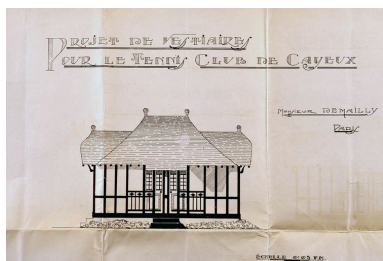 PROJET DE VESTIAIRES
POUR LE TENNIS CLUB DE CAYEUX
MONSIEUR DEMAILLY
PARIS
ECHELLE